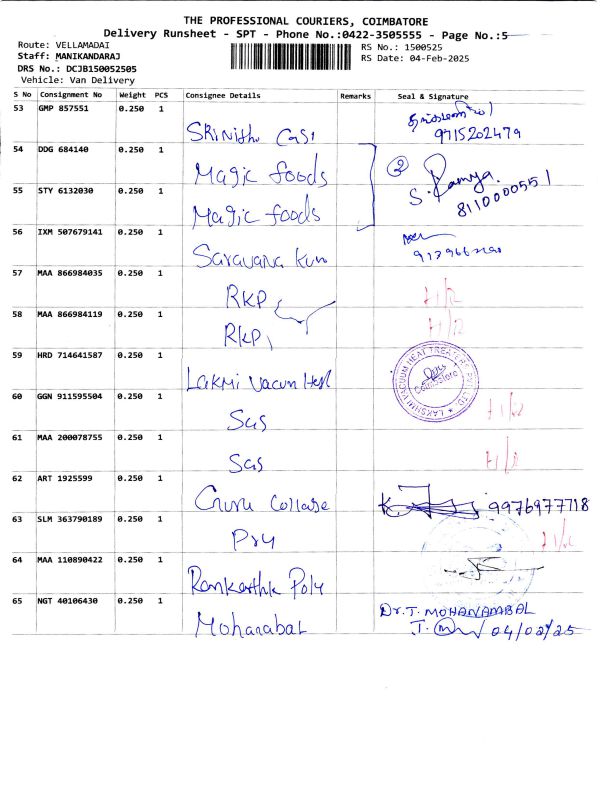 THE PROFESSIONAL COURIERS, COIMBATORE
Delivery Runsheet - SPT - Phone No.:0422-3505555 - Page No.:5
Route: VELLAMADAI
RS No.: 1500525
Staff: MANIKANDARAJ
RS Date: 04-Feb-2025
DRS No.: DCJB150052505
Vehicle: Van Delivery
S No Consignment No Weight PCS Consignee Details Remarks Seal & Signature
53 GMP 857551 0.250 1
9715202479
SRiNithi
54 DDG 684140 0.250 1
Magic foods
2
S. Ramya.
8110000551
55 STY 6132030 0.250 1
Magic foods
56 IXM 507679141 0.250 1
Saravana Kum
57 MAA 866984035 0.250 1
RKP
58 MAA 866984119 0.250 1
RKP
59 HRD 714641587 0.250 1
Lakmi Vacum Heat
LAKSHMI VACUUM HEAT TREATERS PVT LTD
Coimbatore
60 GGN 911595504 0.250 1
Sas
61 MAA 200078755 0.250 1
Sas
62 ART 1925599 0.250 1
Guru Collage
9976977718
63 SLM 363790189 0.250 1
64 MAA 110890422 0.250 1
Ramkarthk Poly
65 NGT 40106430 0.250 1
Mohanabal
Dr.T. MOHANAMBAL
04/02/25